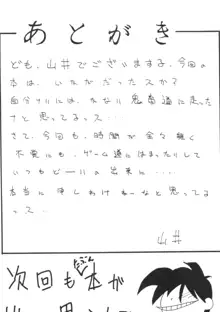 あとがき
ども、山井でございまする。今回の
本は、いかがだったスか?
自分的には、かなり鬼畜道に走った
ナと思ってるっス…
さて、今回も、時間が全く無く
不発にも、ゲーム道にはまったりして
いつもどーりの出来に…
本当に申しわけねーなと思ってる
っス…
山井
次回も本が